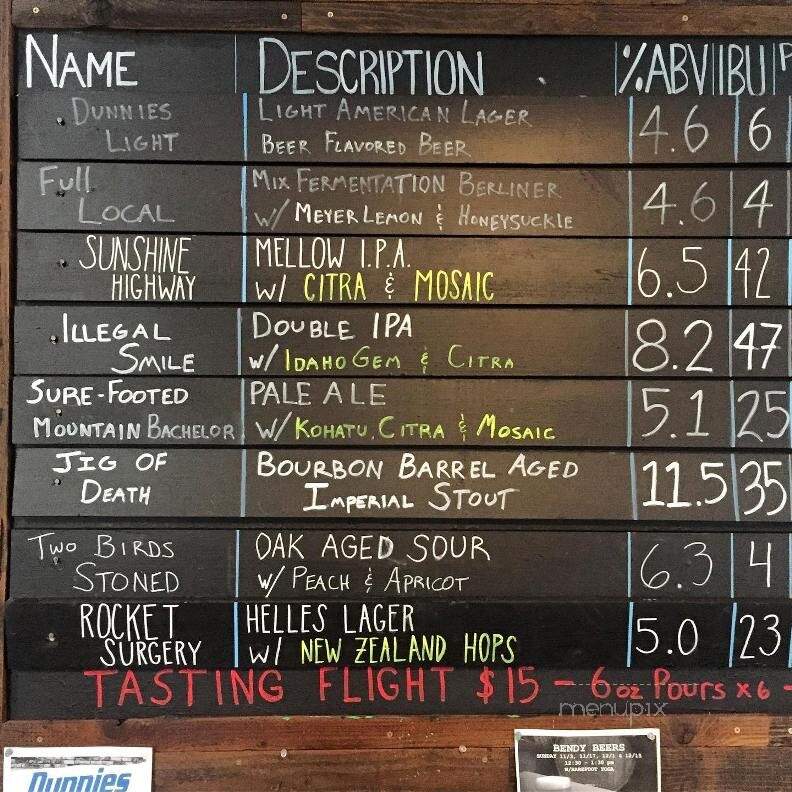 NAME DESCRIPTION %ABV IBU P
DUNNIES LIGHT AMERICAN LAGER 4.6 6
LIGHT BEER FLAVORED BEER
Full MIX FERMENTATION BERLINER 4.6 4
LOCAL W/ MEYER LEMON & HONEYSUCKLE
SUNSHINE MELLOW I.P.A. 6.5 42
HIGHWAY W/ CITRA & MOSAIC
ILLEGAL DOUBLE IPA 8.2 47
SMILE W/ IDAHO GEM & CITRA
SURE-FOOTED PALE ALE 5.1 25
MOUNTAIN BACHELOR W/ KOHATU, CITRA & MOSAIC
JIG OF BOURBON BARREL AGED 11.5 35
DEATH IMPERIAL STOUT
TWO BIRDS OAK AGED SOUR 6.3 4
STONED W/ PEACH & APRICOT
ROCKET HELLES LAGER 5.0 23
SURGERY W/ NEW ZEALAND HOPS
TASTING FLIGHT $15 - 6 oz Pours x 6 -
menupix
Dunnies
BENDY BEERS
SUNDAY 11/3, 11/17, 12/1 & 12/15
12:30 - 1:30 pm
W/BAREFOOT YOGA